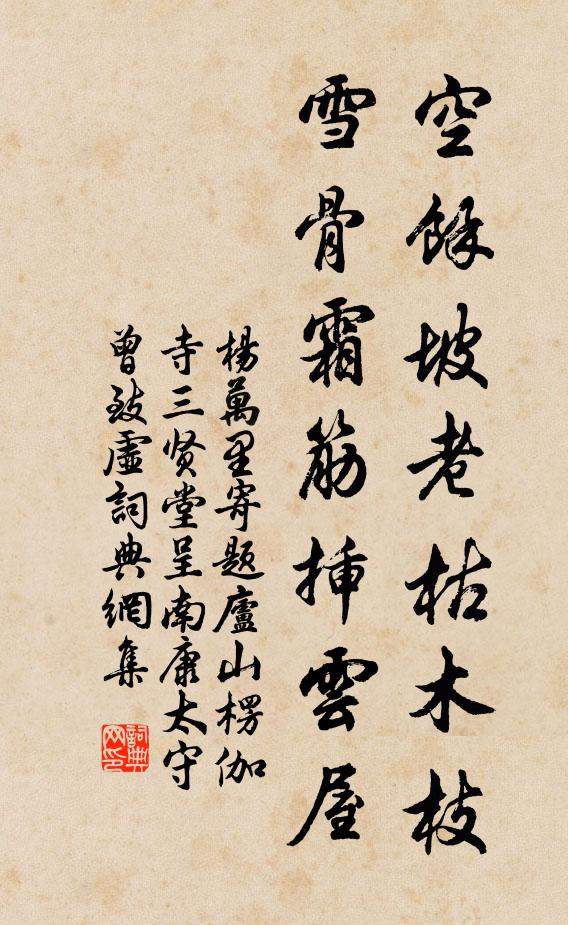 空餘坡老枯木枝
雪骨霜筋插雲屋
楊萬里寄題廬山楞伽
寺三贤堂呈南康太守
曾致虛詞典網集
詞典
网印